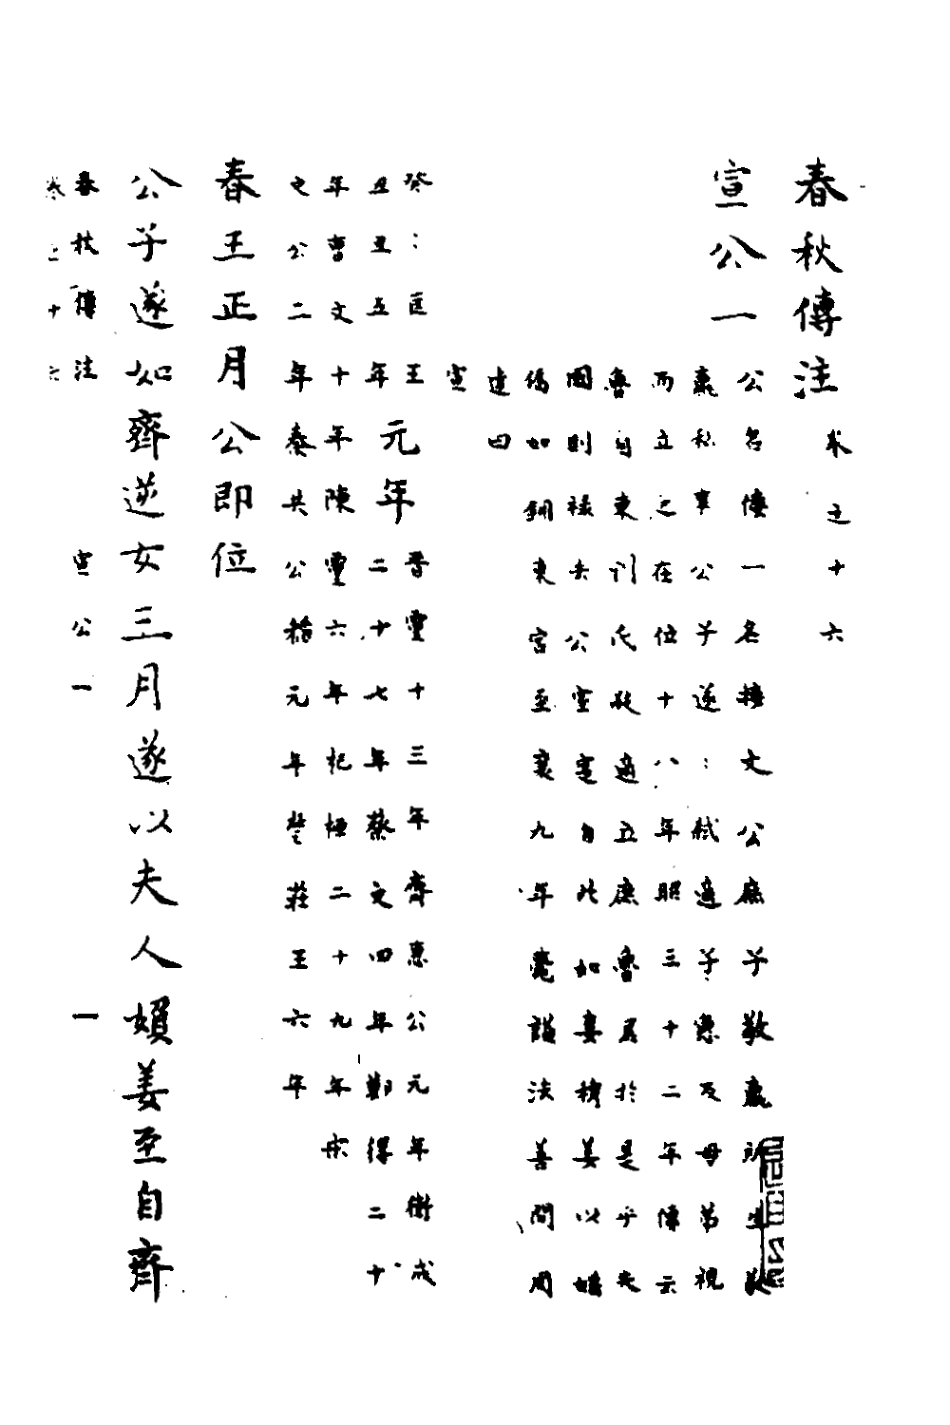 春秋傳注 卷之十六
宣公一
公名倭一名接文公庶子敬嬴所生敬
嬴私事公子遂〻弒適子惡及母弟視
而立之在位十八年昭三十二年傳云
魯自東門氏殺適立庶魯君於是乎失
國則祿去公室寔自此始妻穆姜以
僑如錮東宮至襄九年薨諡法善問周
達曰
宣
癸〻匡王元年晉靈十三年齊惠公元年衛成
丑丑五年二十七年蔡文四年鄭穆二十
年曹文十年陳靈六年杞桓二十九年宋
文公二年秦共公稻元年楚莊王六年
春王正月公即位
公子遂如齊逆女三月遂以夫人媍姜至自齊
春秋傳注 宣公一 一
卷之十六